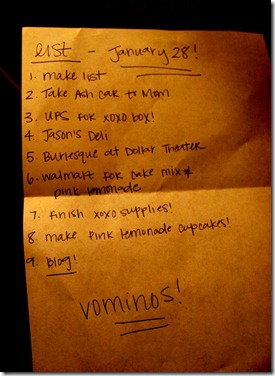 list - January 28!
1. make list
2 Take Ash car to Mom
3. UPS for xoxo box!
4 Jason's Deli
5. Burlesque at Dollar Theater
6. walmart for cake mix &
pink lemonade
7. finish xoxo supplies!
8. make pink lemonade cupcakes!
9. blog!
vominos!